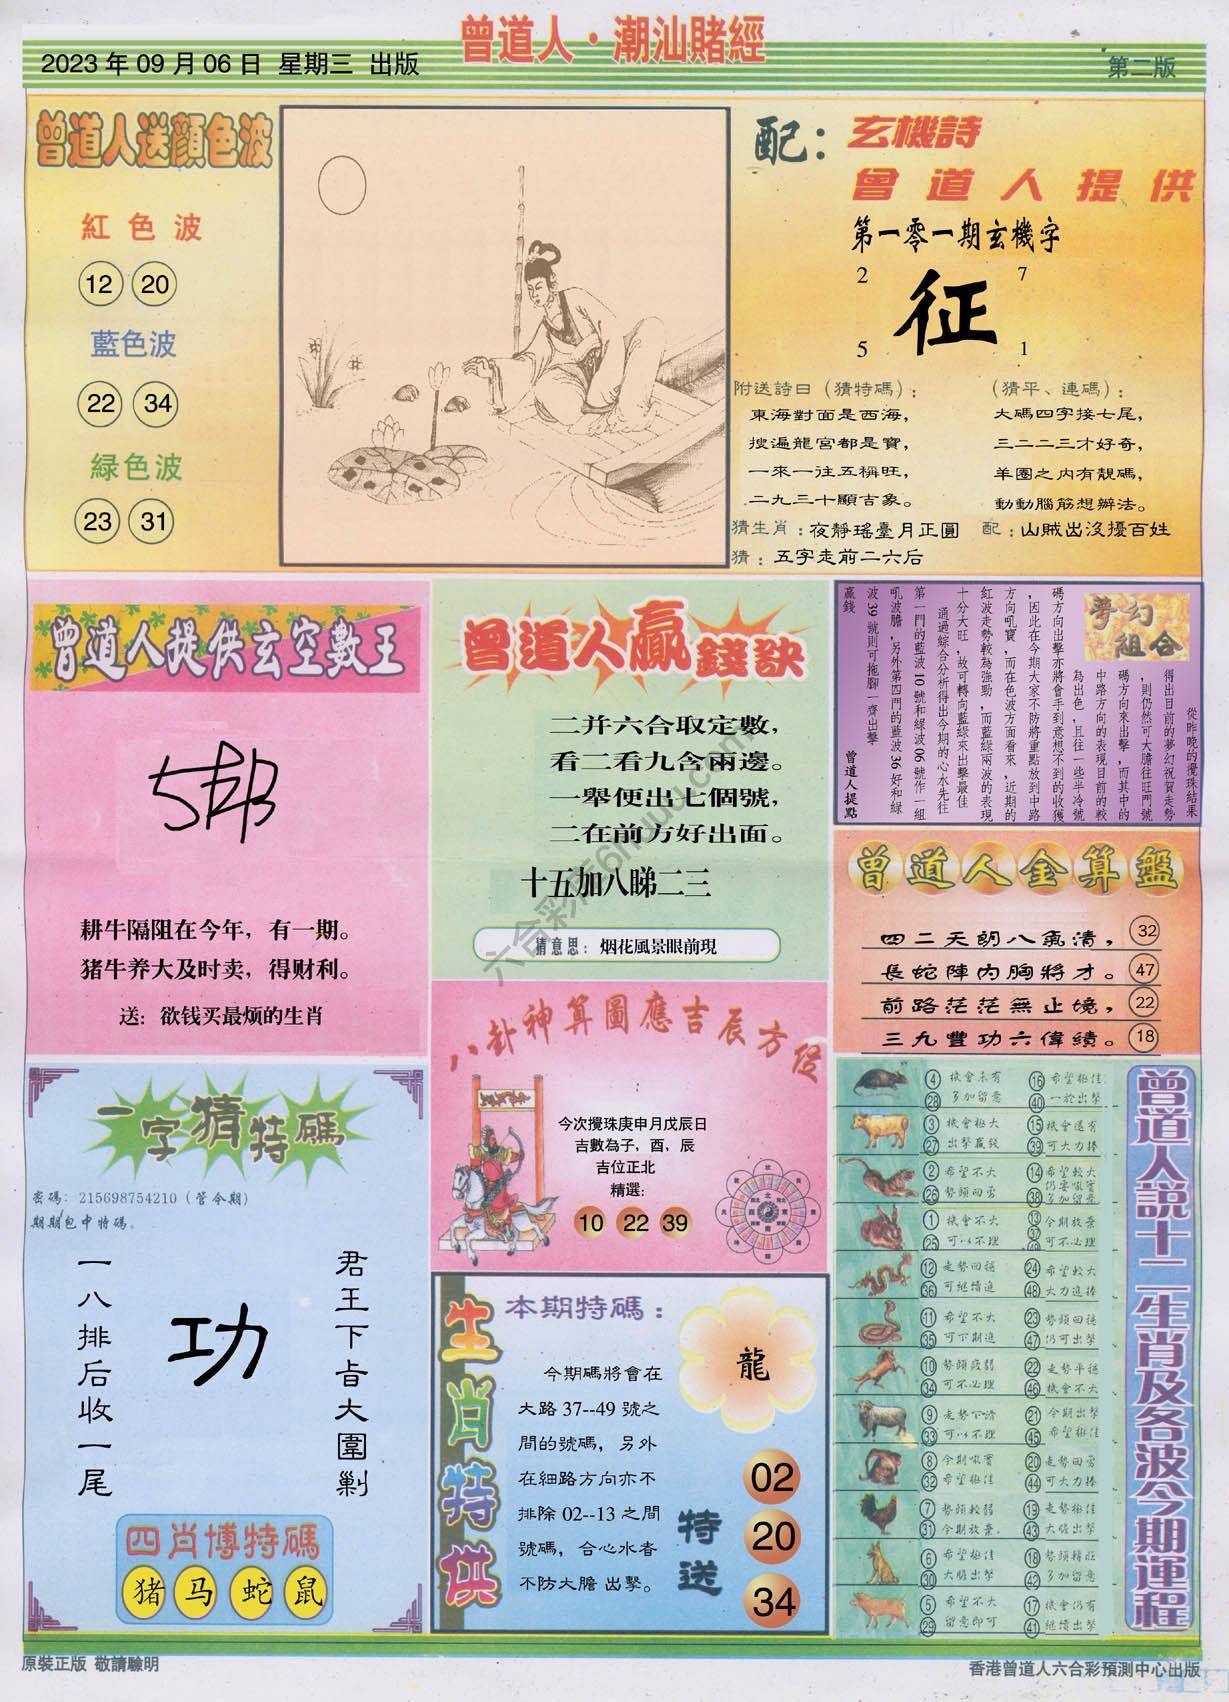 曾道人·潮汕賭經
2023年09月06日 星期三 出版
第二版
曾道人送顔色波
紅色波
12 20
藍色波
22 34
緑色波
23 31
配：玄機詩
曾道人提供
第一零一期玄機字
2 7
征
5 1
附送詩曰（猜特碼）：
東海對面是西海，
搜遍龍宮都是寶，
一來一往五稱旺，
二九三十顯吉象。
（猜平、連碼）：
大碼四字接七尾，
三二二三才好奇，
羊圈之内有靚碼，
動動腦筋想辦法。
猜生肖：夜靜瑤臺月正圓
配：山賊出沒擾百姓
猜：五字走前二六后
曾道人提供玄空數王
耕牛隔阻在今年，有一期。
猪牛养大及时卖，得财利。
送：欲钱买最烦的生肖
曾道人贏錢訣
二并六合取定數，
看二看九含兩邊。
一舉便出七個號，
二在前方好出面。
十五加八睇二三
猜意思：烟花風景眼前現
夢幻組合
從昨晚的攪珠結果
得出目前的夢幻祝賀走勢
，則仍然可大膽往旺門號
碼方向來出擊，而其中的
中路方向的表現目前的較
為出色，且往一些半冷號
碼方向出擊亦將會手到意想不到的收獲
，因此在今期大家不防將重點放到中路
方向吼寶，而在色波方面看來，近期的
紅波走勢較為強勁，而藍綠兩波的表現
十分大旺，故可轉向藍綠來出擊最佳
通過綜合分析得出今期的心水先往
第一門的藍波10號和綠波06號作一組
吼波膽，另外第四門的藍波36好和綠
波39號則可拖腳一齊出擊
贏錢
曾道人提點
曾道人金算盤
四二天朗八氣清， 32
長蛇陣内胸將才。 47
前路茫茫無止境， 22
三九豐功六偉績。 18
八卦神算圖應吉辰方位
今次攪珠庚申月戊辰日
吉數為子，酉，辰
吉位正北
精選：
10 22 39
一字猜特碼
密碼：215698754210（管令期）
期期包中特碼。
君王下旨大圍剿
功
一八排后收一尾
四肖博特碼
猪 马 蛇 鼠
生肖特供
本期特碼：
龍
今期碼將會在
大路37--49號之
間的號碼，另外
在細路方向亦不
排除02--13之間
號碼，合心水者
不防大膽出擊。
特送
02
20
34
曾道人説十二生肖及各波今期運程
4 28 機會未有 多加留意 16 40 希望極佳 一於出擊
3 27 機會極大 出擊贏錢 15 39 機會還有 可大力捧
2 26 希望不大 勢頭回勇 14 38 希望較大 仍要吼實 多加留意
1 25 機會不大 可以不理 13 37 今期放棄 可不必理
12 36 走勢回穩 可繼續追 24 48 希望較大 大力追捧
11 35 希望不大 可下期追 23 47 勢頭回穩 仍可出擊
10 34 勢頭疲弱 可不必理 22 46 走勢平穩 機會不大
9 33 可以不理 21 45 今期出擊 希望極佳
8 32 今期吼實 希望極佳 20 44 走勢回勇 可大力捧
7 31 勢頭較弱 今期放棄， 19 43 走勢極佳 大膽出擊
6 30 希望極佳 大膽出擊 18 42 勢頭轉旺 多加留意
5 29 希望不大 留意即可 17 41 機會仍有 繼續出擊
原裝正版 敬請驗明
香港曾道人六合彩預測中心出版